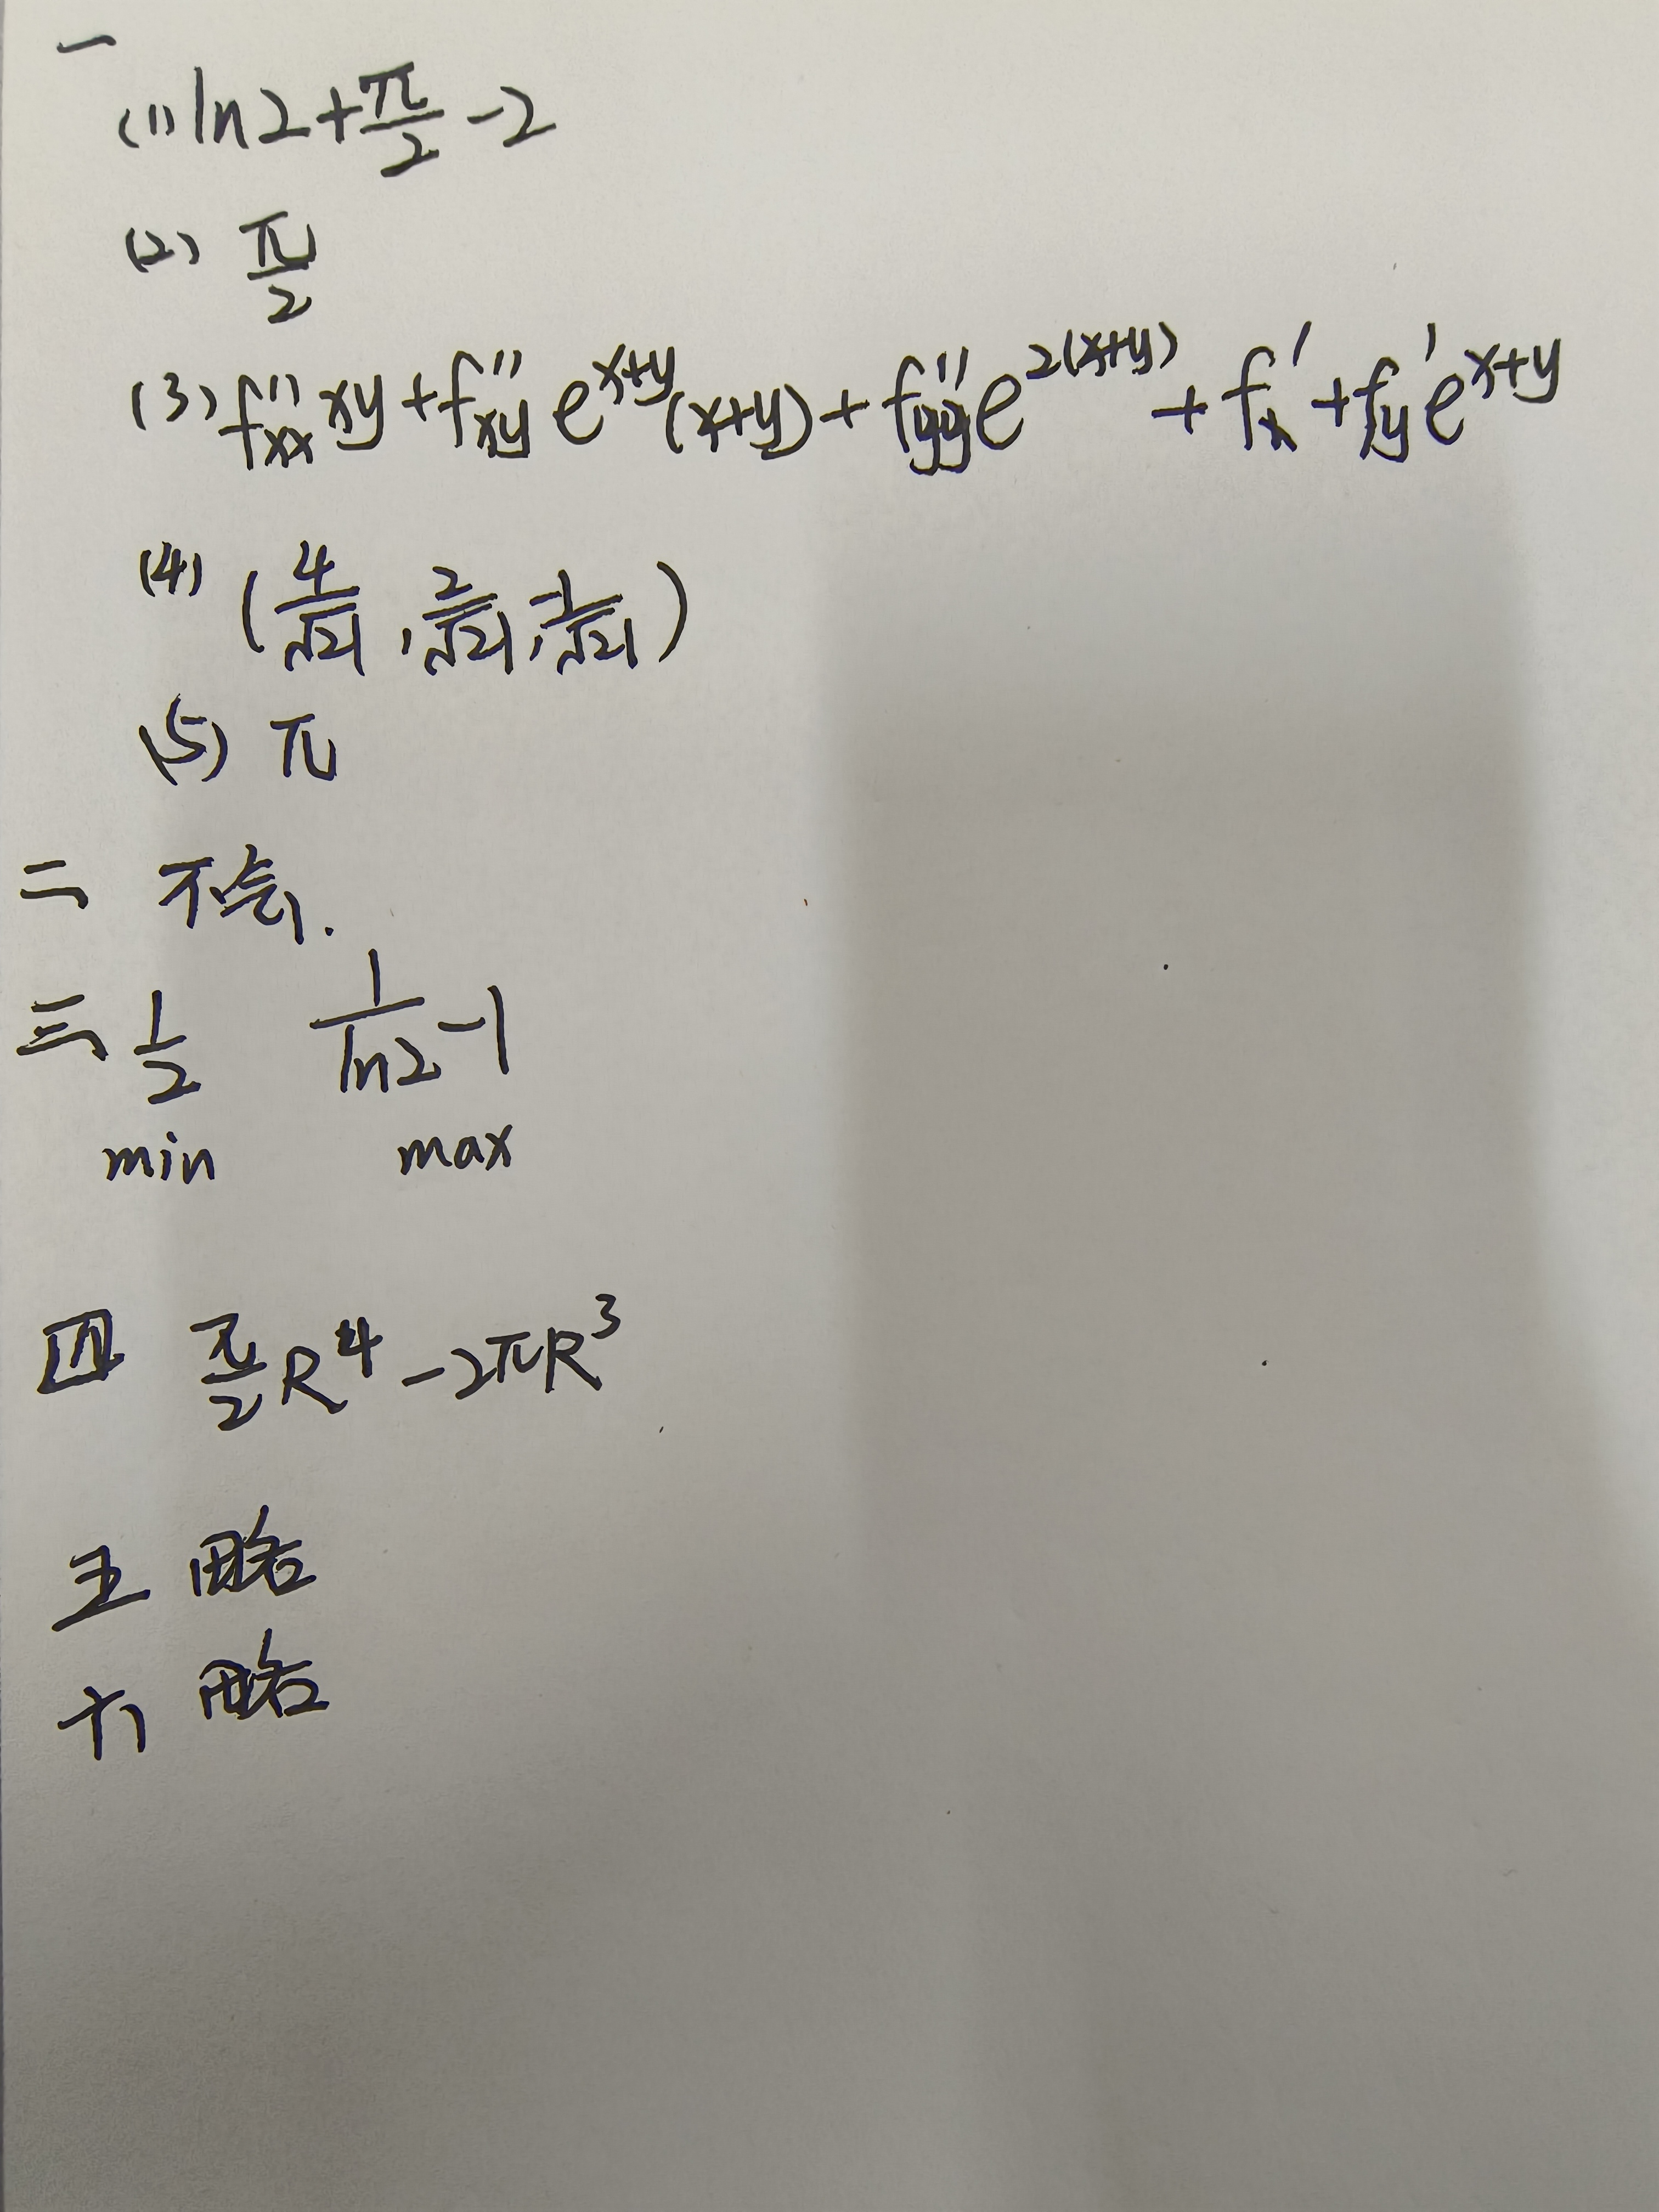 一
(1) ln2+π/2-2
(2) π/2
(3) f''xx xy+f''xy e^(x+y)(x+y)+f''yy e^(2(x+y))+f'x+f'y e^(x+y)
(4) (4/√21, 2/√21, -1/√21)
(5) π
二 不会.
三 1/2 1/ln2-1
min max
四 π/2 R^4-2πR^3
五 略
六 略